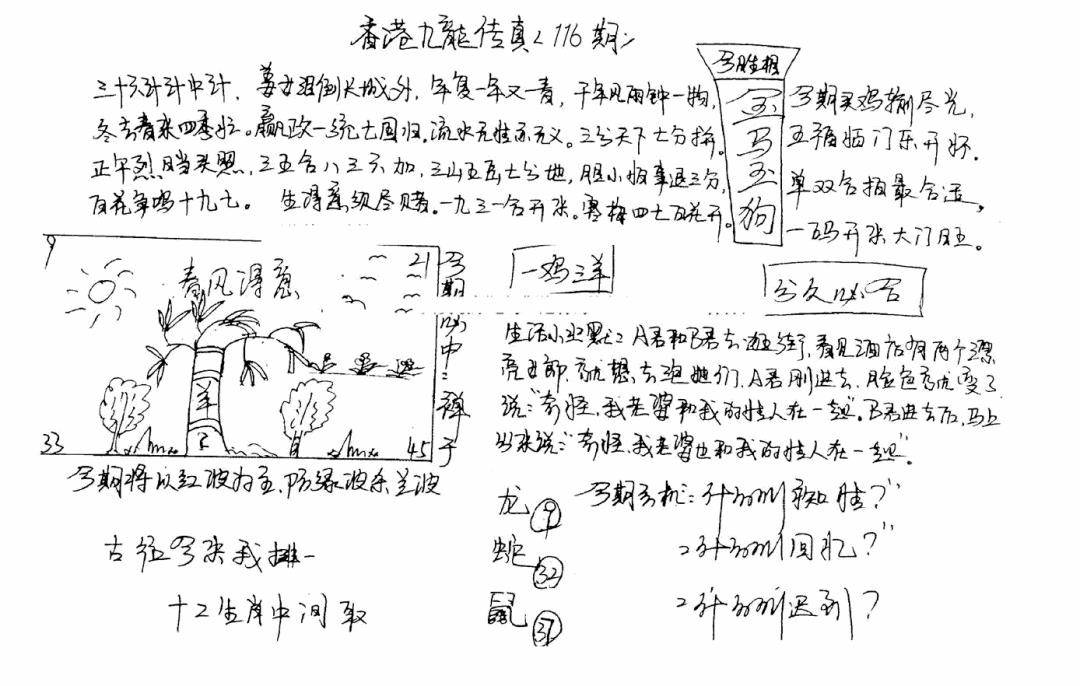 香港九龍传真<116期>
三十六计计中计，姜女泪倒长城外，年复一年又一春，千年风雨钟一鸣，
冬去春来四季红。嬴政一统七国归。流水无情亦无义。三分天下七分拼。
正午烈日当头照，三五合八三六加，三山五岳七分地，胆小怕事退三分，
百花争鸣十九七。生得高级尽赌。一九三一合开来。寒梅四七百花开。
今期买鸡输尽光，
五福临门乐开怀。
单双合拍最合适，
一码开来大门旺。
马
玉
狗
9
21
春风得意
33
45
羊
今期必中：禅子
一鸡三羊
分久必合
生活小幽默：A君和B君去逛街，看见酒店有两个漂
亮女郎，就想去泡她们，A君刚进去，脸色就变了
说："奇怪，我老婆和我的情人在一起"。B君进去后，马上
出来说："奇怪，我老婆也和我的情人在一起"。
今期将以红波为主，防绿波杀兰波
古往今来我排一
十二生肖中间取
龙 9
蛇 32
鼠 37
今期玄机：
回忆？"
迟到？